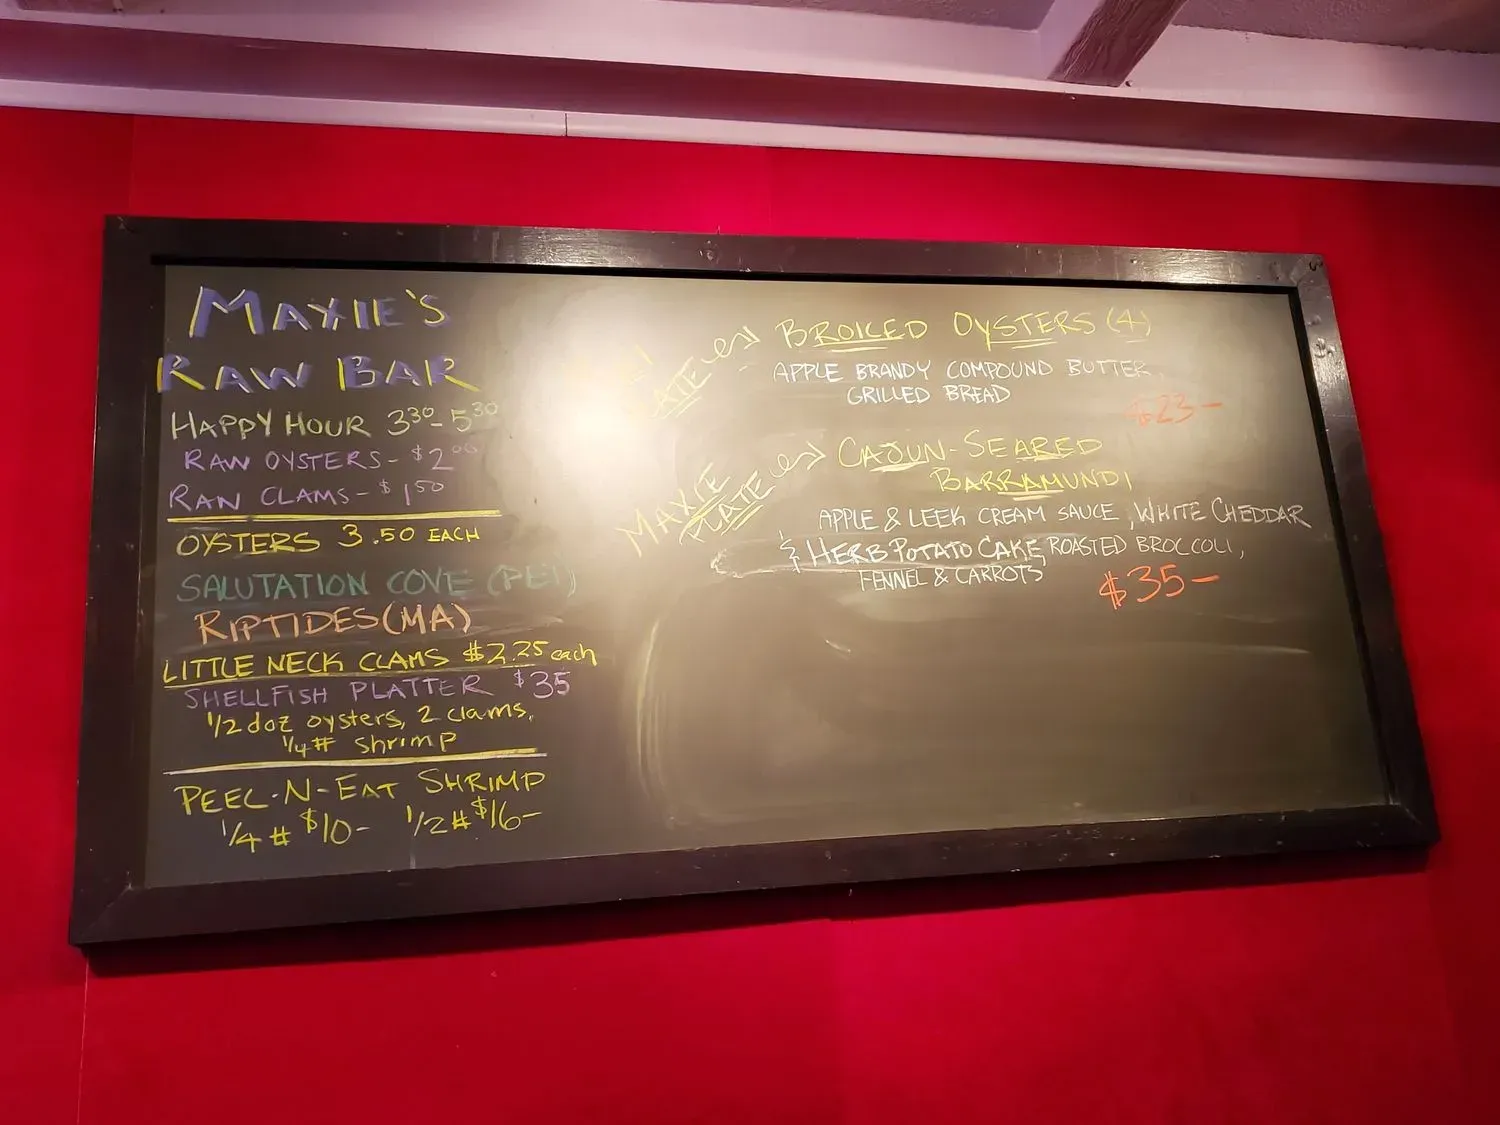 MAXIE'S
RAW BAR
HAPPY HOUR 3³⁰-5³⁰
RAW OYSTERS - $2⁰⁰
RAW CLAMS - $1⁵⁰
OYSTERS 3.50 EACH
SALUTATION COVE (PEI)
RIPTIDES (MA)
LITTLE NECK CLAMS $2.25 each
SHELLFISH PLATTER $35
1/2 doz oysters, 2 clams,
1/4# shrimp
PEEL-N-EAT SHRIMP
1/4 # $10- 1/2# $16-
PLATE
BROILED OYSTERS (4)
APPLE BRANDY COMPOUND BUTTER,
GRILLED BREAD
$23-
MAXIE
PLATE
CAJUN-SEARED
BARRAMUNDI
APPLE & LEEK CREAM SAUCE, WHITE CHEDDAR
& HERB POTATO CAKE, ROASTED BROCCOLI,
FENNEL & CARROTS
$35-